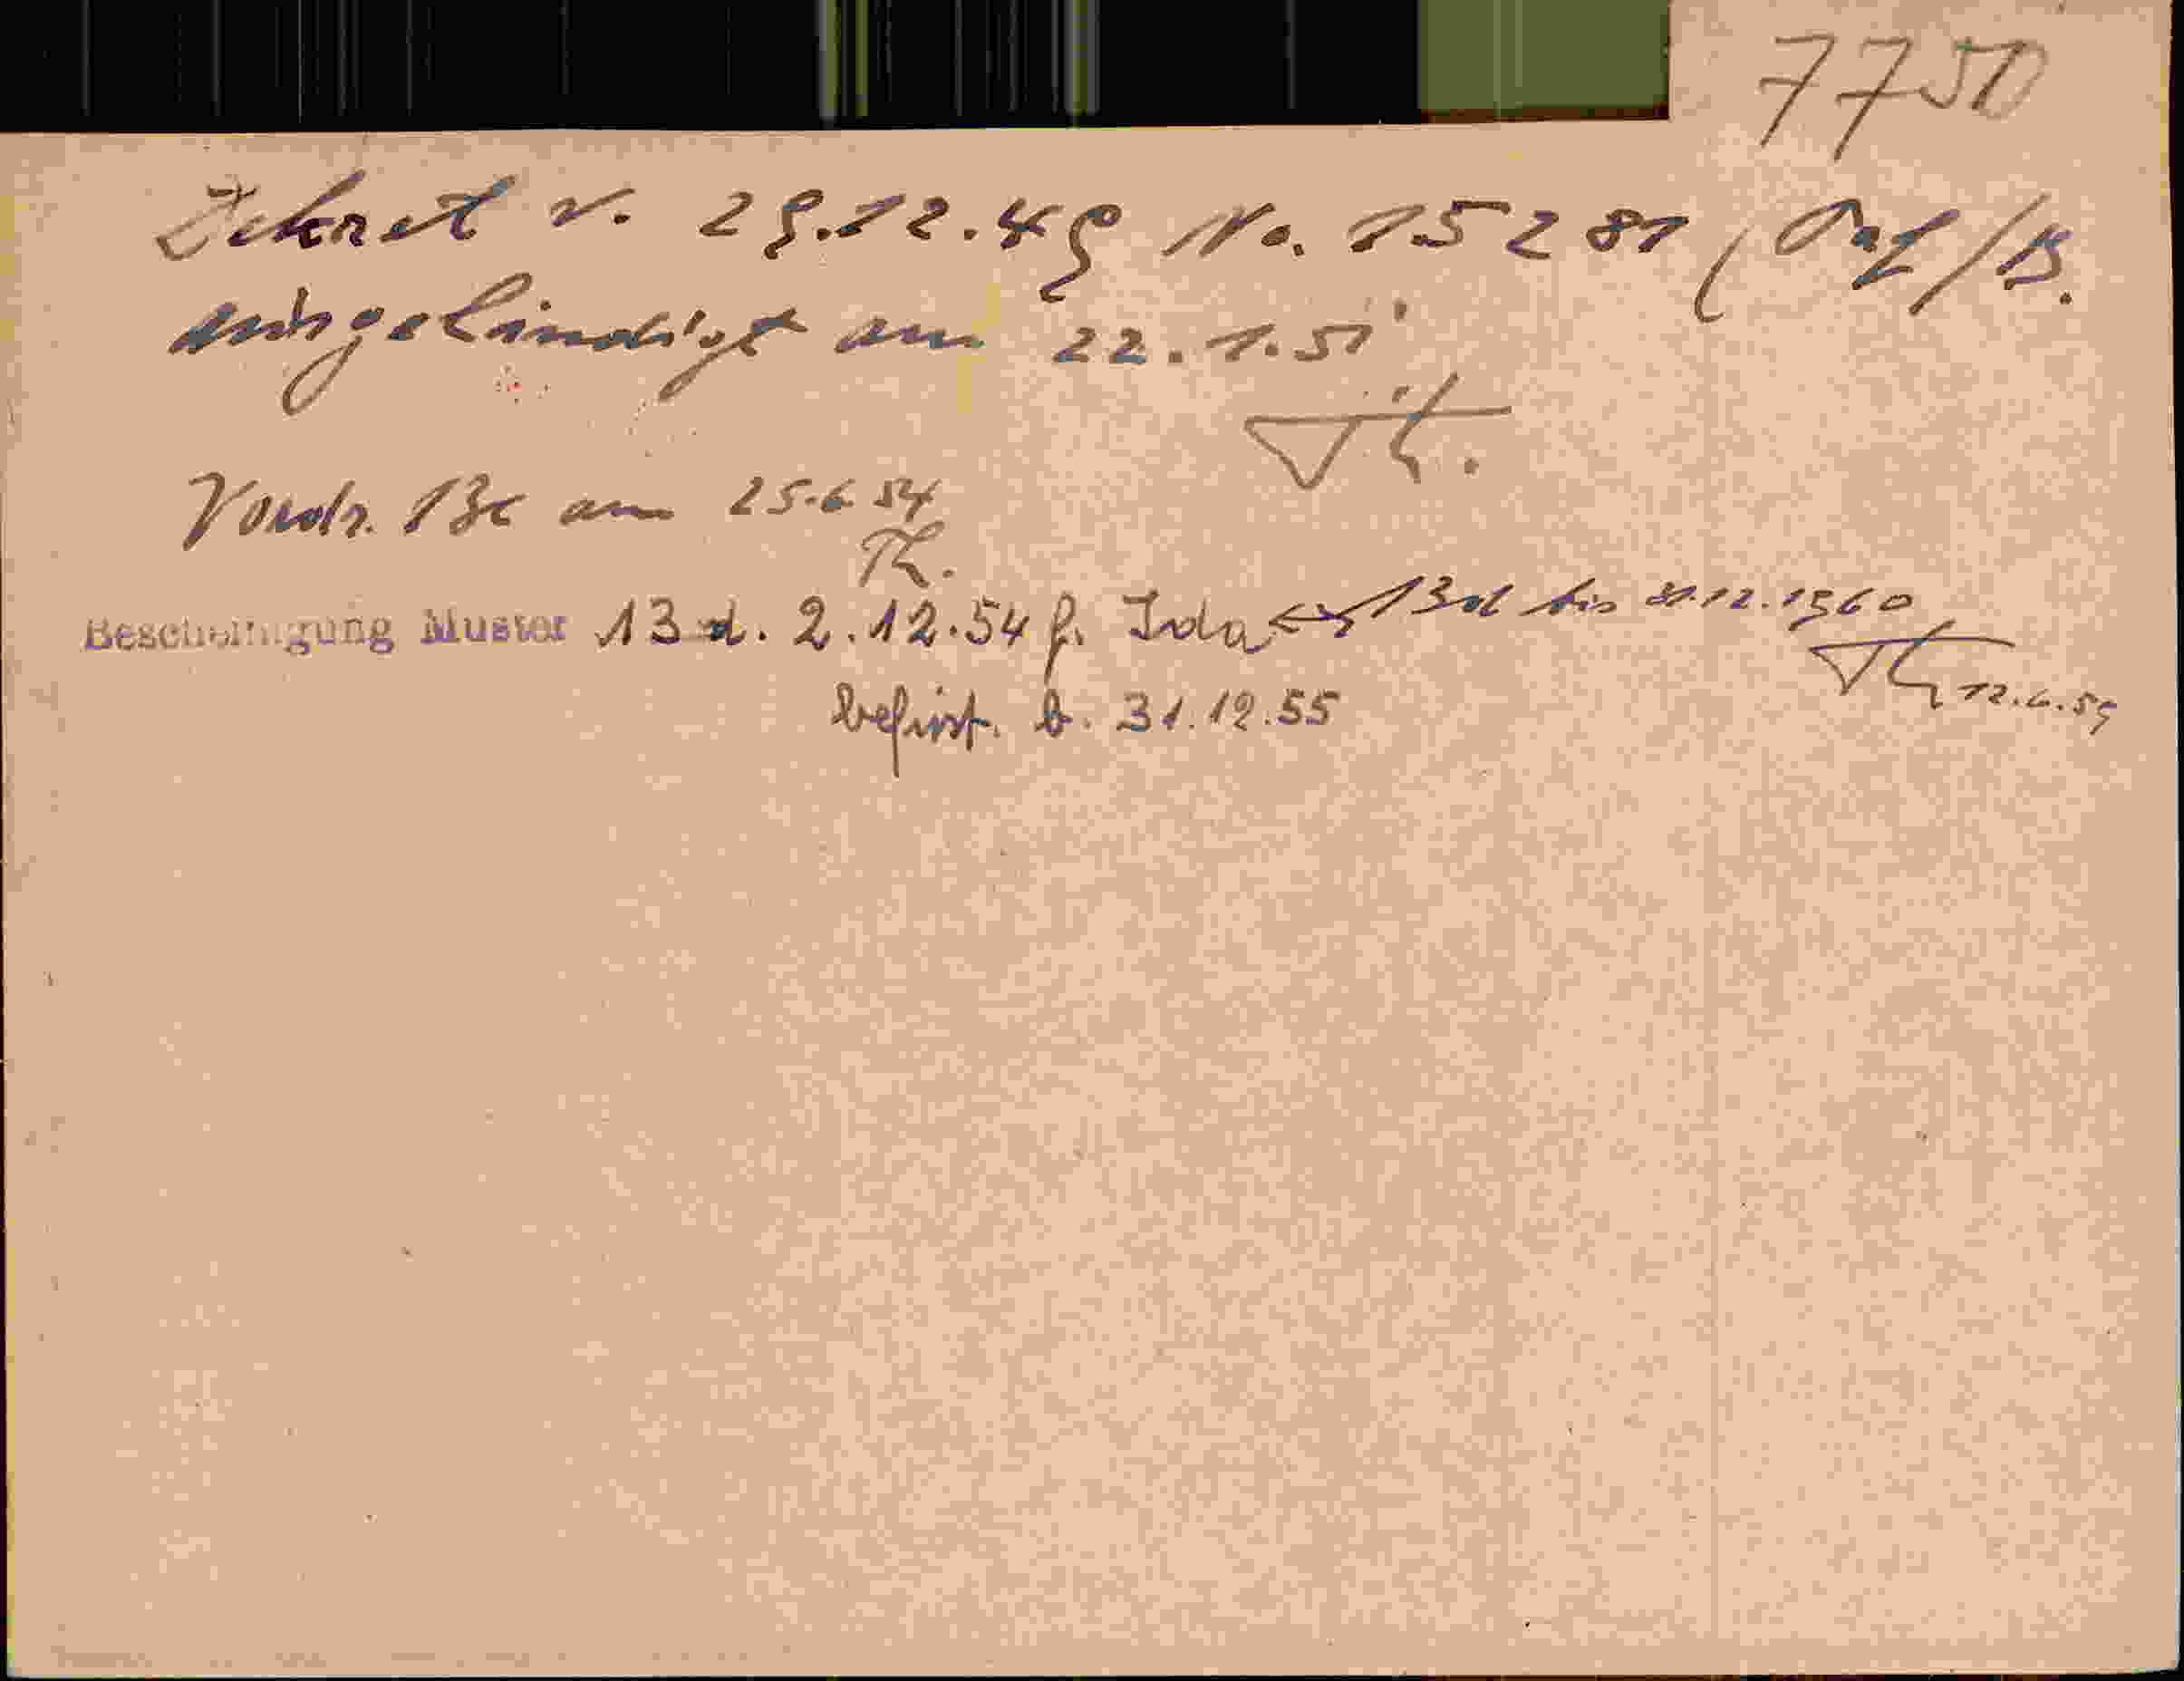 7750
Dekret v. 29.12.49 No. 15281 (
ausgehändigt am 22.1.51
Th.
Vordr. 13c am 25.6.54
Th.
Bescheinigung Muster 13 d. 2.12.54 f. Ida 13d bis 31.12.1960
befrist. b. 31.12.55
Th 12.6.59